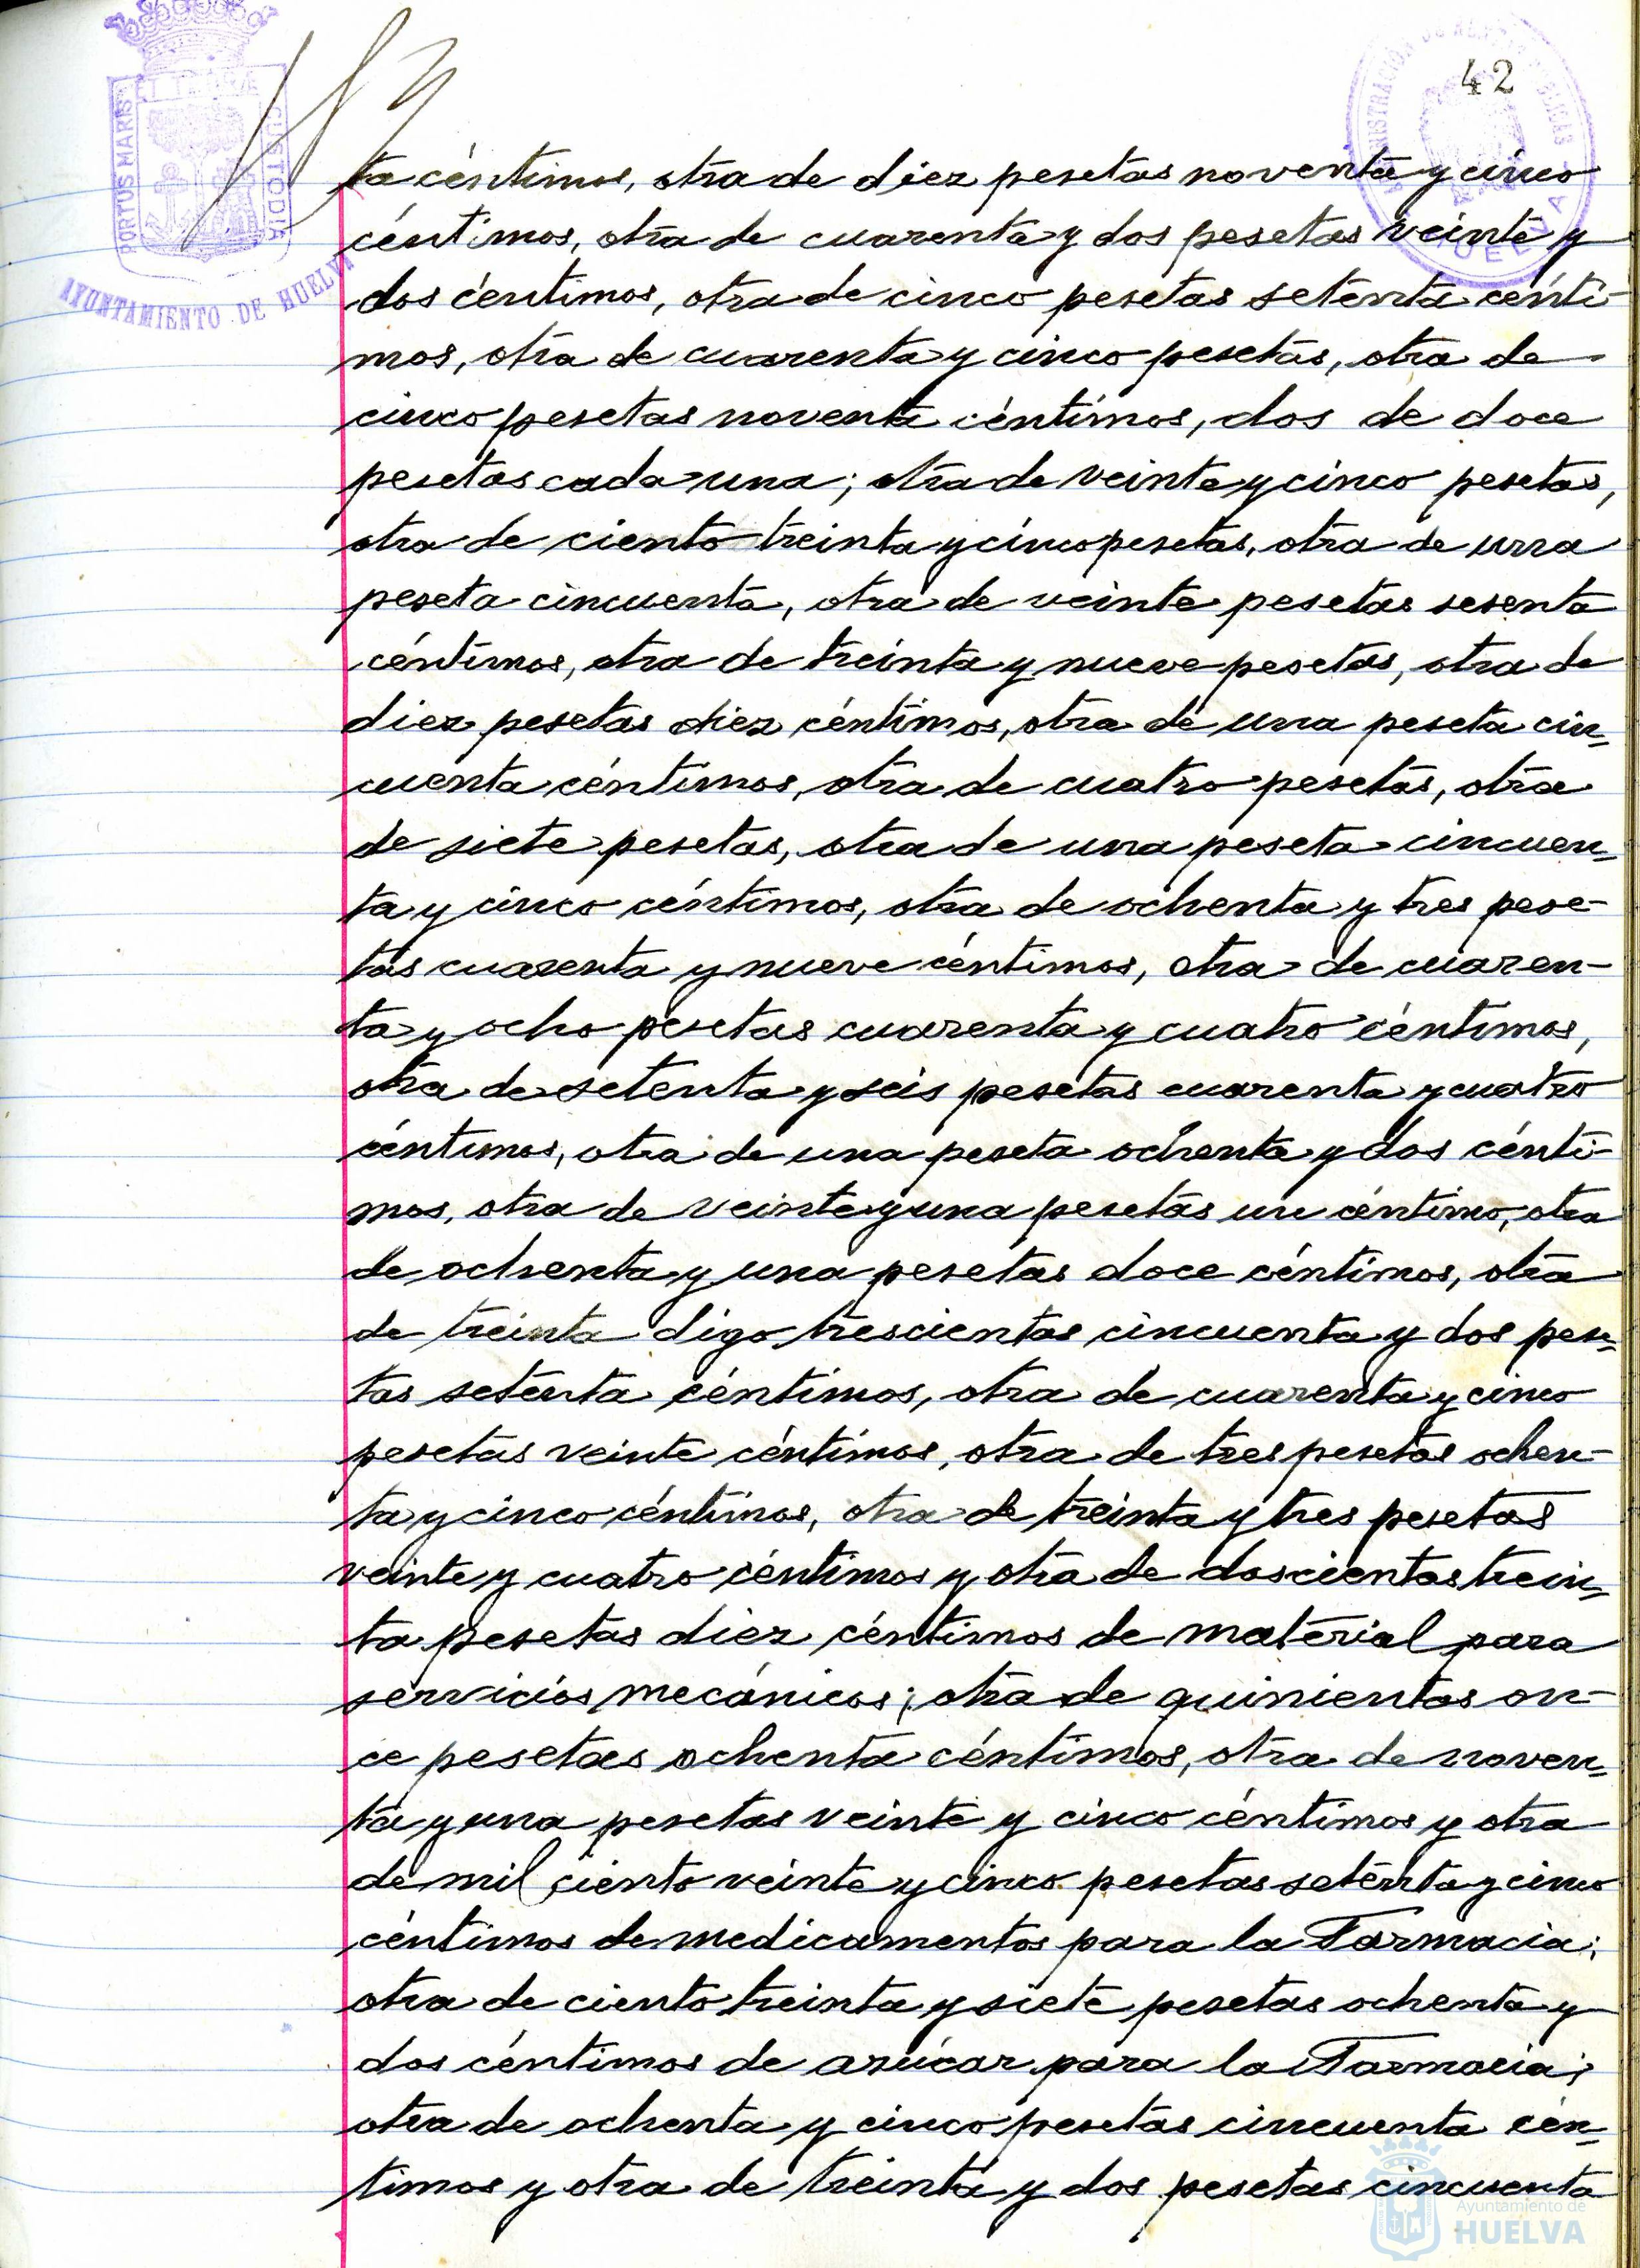 42
PORTUS MARIS ET TERRAE CUSTODIA
AYUNTAMIENTO DE HUELVA
HUELVA
ta céntimos, otra de diez pesetas noventa y cinco
céntimos, otra de cuarenta y dos pesetas veinte y
dos céntimos, otra de cinco pesetas setenta cénti-
mos, otra de cuarenta y cinco pesetas, otra de
cinco pesetas noventa céntimos, dos de doce
pesetas cada una; otra de veinte y cinco pesetas,
otra de ciento treinta y cinco pesetas, otra de una
peseta cincuenta, otra de veinte pesetas sesenta
céntimos, otra de treinta y nueve pesetas, otra de
diez pesetas diez céntimos, otra de una peseta cin-
cuenta céntimos, otra de cuatro pesetas, otra
de siete pesetas, otra de una peseta cincuen-
ta y cinco céntimos, otra de ochenta y tres pese-
tas cuarenta y nueve céntimos, otra de cuaren-
ta y ocho pesetas cuarenta y cuatro céntimos,
otra de setenta y seis pesetas cuarenta y cuatro
céntimos, otra de una peseta ochenta y dos cénti-
mos, otra de veinte y una pesetas un céntimo, otra
de ochenta y una pesetas doce céntimos, otra
de treinta digo trescientas cincuenta y dos pese-
tas setenta céntimos, otra de cuarenta y cinco
pesetas veinte céntimos, otra de tres pesetas ochen-
ta y cinco céntimos, otra de treinta y tres pesetas
veinte y cuatro céntimos y otra de doscientas trein-
ta pesetas diez céntimos de material para
servicios mecánicos; otra de quinientas on-
ce pesetas ochenta céntimos, otra de noven-
ta y una pesetas veinte y cinco céntimos y otra
de mil ciento veinte y cinco pesetas setenta y cinco
céntimos de medicamentos para la Farmacia;
otra de ciento treinta y siete pesetas ochenta y
dos céntimos de azúcar para la Farmacia;
otra de ochenta y cinco pesetas cincuenta cén-
timos y otra de treinta y dos pesetas cincuenta
Ayuntamiento de
HUELVA